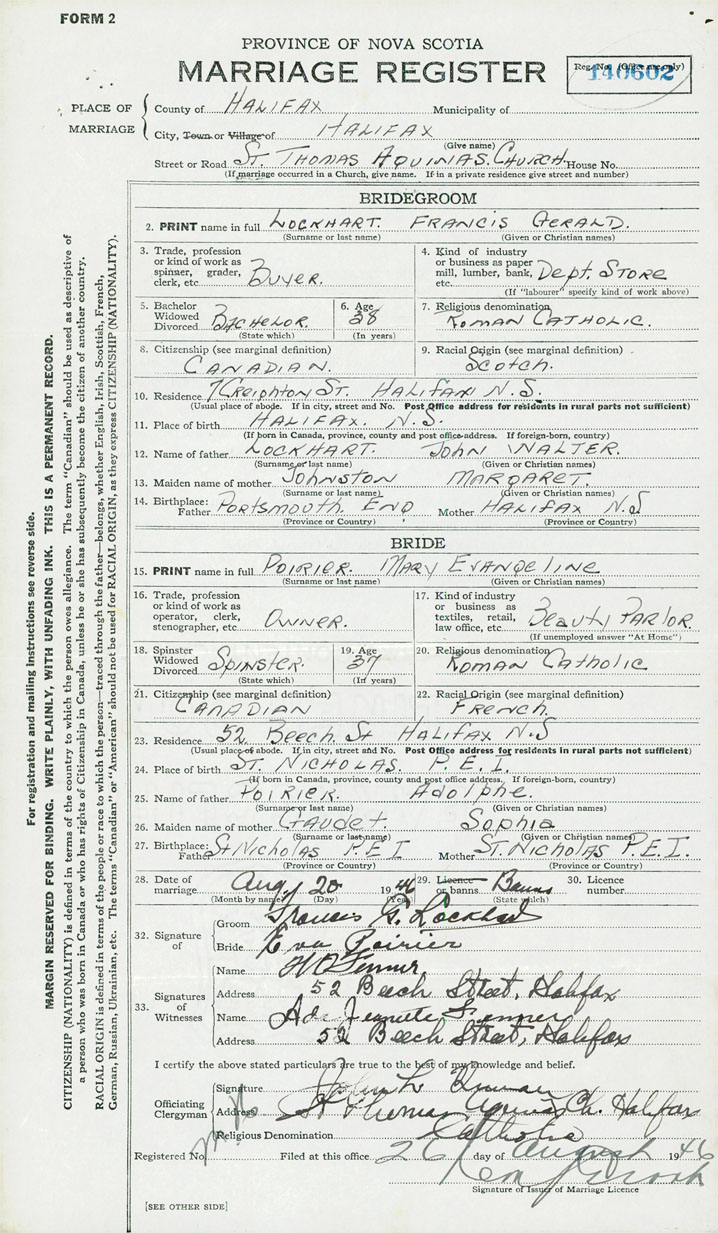 FORM 2
PROVINCE OF NOVA SCOTIA
MARRIAGE REGISTER
Reg. No. (Office use only)
140602
PLACE OF MARRIAGE
County of HALIFAX Municipality of
City, Town or Village of HALIFAX
(Give name)
Street or Road ST. THOMAS AQUINAS. CHURCH. House No.
(If marriage occurred in a Church, give name. If in a private residence give street and number)
BRIDEGROOM
2. PRINT name in full LOCKHART. FRANCIS GERALD.
(Surname or last name) (Given or Christian names)
3. Trade, profession or kind of work as spinner, grader, clerk, etc. BUYER.
4. Kind of industry or business as paper mill, lumber, bank, etc. DEPT. STORE
(If "labourer" specify kind of work above)
5. Bachelor Widowed Divorced BACHELOR
(State which)
6. Age 38
(In years)
7. Religious denomination ROMAN CATHOLIC.
8. Citizenship (see marginal definition) CANADIAN.
9. Racial Origin (see marginal definition) SCOTCH.
10. Residence 7 CREIGHTON ST. HALIFAX N.S.
(Usual place of abode. If in city, street and No. Post Office address for residents in rural parts not sufficient)
11. Place of birth HALIFAX. N.S.
(If born in Canada, province, county and post office address. If foreign-born, country)
12. Name of father LOCKHART. JOHN WALTER.
(Surname or last name) (Given or Christian names)
13. Maiden name of mother JOHNSTON MARGARET.
(Surname or last name) (Given or Christian names)
14. Birthplace: Father PORTSMOUTH ENG Mother HALIFAX N.S
(Province or Country) (Province or Country)
BRIDE
15. PRINT name in full POIRIER. MARY EVANGELINE
(Surname or last name) (Given or Christian names)
16. Trade, profession or kind of work as operator, clerk, stenographer, etc. OWNER.
17. Kind of industry or business as textiles, retail, law office, etc. BEAUTY PARLOR
(If unemployed answer "At Home")
18. Spinster Widowed Divorced SPINSTER.
(State which)
19. Age 37
(In years)
20. Religious denomination ROMAN CATHOLIC
21. Citizenship (see marginal definition) CANADIAN
22. Racial Origin (see marginal definition) FRENCH.
23. Residence 52 BEECH ST HALIFAX N.S
(Usual place of abode. If in city, street and No. Post Office address for residents in rural parts not sufficient)
24. Place of birth ST. NICHOLAS. P.E.I.
(If born in Canada, province, county and post office address. If foreign-born, country)
25. Name of father POIRIER. Adolphe.
(Surname or last name) (Given or Christian names)
26. Maiden name of mother Gaudet. Sophia
(Surname or last name) (Given or Christian names)
27. Birthplace: Father St Nicholas P.E.I Mother ST. NICHOLAS P.E.I.
(Province or Country) (Province or Country)
28. Date of marriage Aug 20 1946
(Month by name) (Day) (Year)
29. Licence or banns Banns
(State which)
30. Licence number
32. Signature of
Groom Francis G. Lockhart
Bride Eva Poirier
33. Signatures of Witnesses
Name
Address 52 Beech Street, Halifax
Name
Address 52 Beech Street, Halifax
I certify the above stated particulars are true to the best of my knowledge and belief.
Officiating Clergyman
Signature John L.
Address St Thomas Aquinas Ch. Halifax
Religious Denomination Catholic
Registered No. Filed at this office 26 day of August 1946
Signature of Issuer of Marriage Licence
[SEE OTHER SIDE]
For registration and mailing instructions see reverse side.
MARGIN RESERVED FOR BINDING. WRITE PLAINLY, WITH UNFADING INK. THIS IS A PERMANENT RECORD.
CITIZENSHIP (NATIONALITY) is defined in terms of the country to which the person owes allegiance. The term "Canadian" should be used as descriptive of
a person who was born in Canada or who has rights of Citizenship in Canada, unless he or she has subsequently become the citizen of another country.
RACIAL ORIGIN is defined in terms of the people or race to which the person—traced through the father—belongs, whether English, Irish, Scottish, French,
German, Russian, Ukrainian, etc. The terms "Canadian" or "American" should not be used for RACIAL ORIGIN, as they express CITIZENSHIP (NATIONALITY).